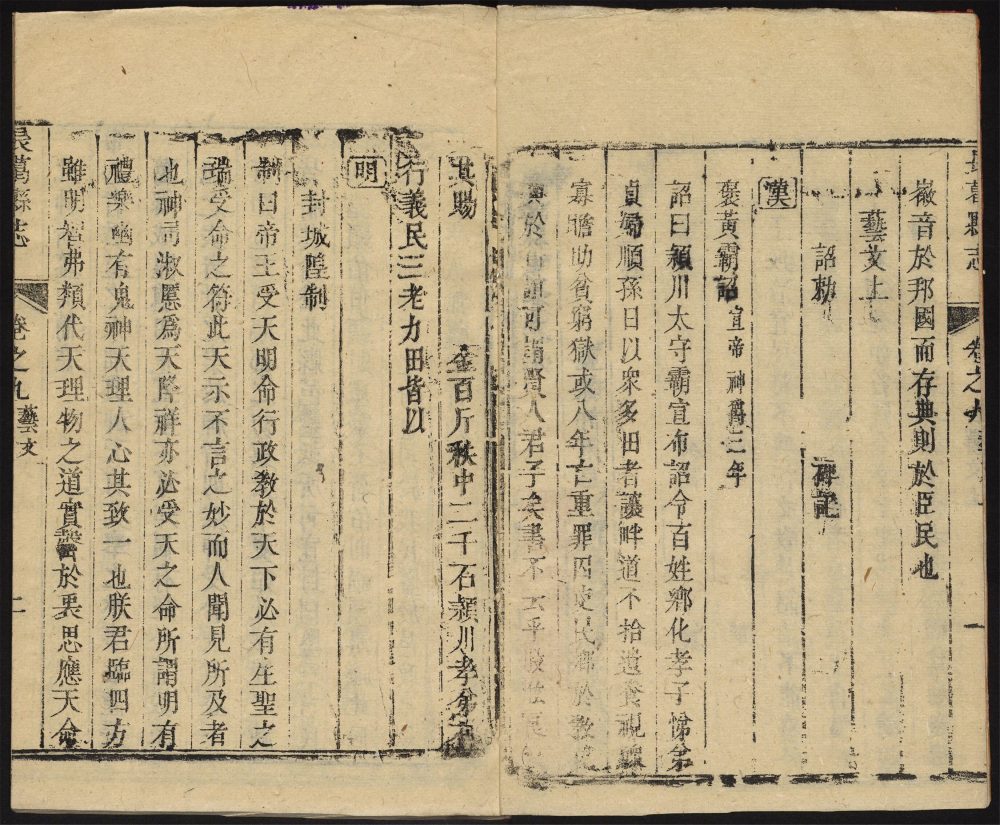 長葛縣志 卷之九
一
徽音於邦國而存典則於臣民也
藝文上
詔勅 碑記
漢
褒黃霸詔宣帝神爵三年
詔曰潁川太守霸宣布詔令百姓鄉化孝子悌弟
貞婦順孫日以衆多田者讓畔道不拾遺養視鰥
寡贍助貧窮獄或八年亡重罪囚吏民鄉於教
興於行誼可謂賢人君子矣書不云乎股肱良
其賜 金百斤秩中二千石潁川孝弟有
行義民三老力田皆以
明
封城隍制
制曰帝王受天明命行政教於天下必有生聖之
瑞受命之符此天示不言之妙而人聞見所及者
也神司淑慝爲天降祥亦必受天之命所謂明有
禮樂幽有鬼神天理人心其致一也朕君臨四方
雖明智弗類代天理物之道實罄於衷思應天命
長葛縣志 卷之九 藝文
二